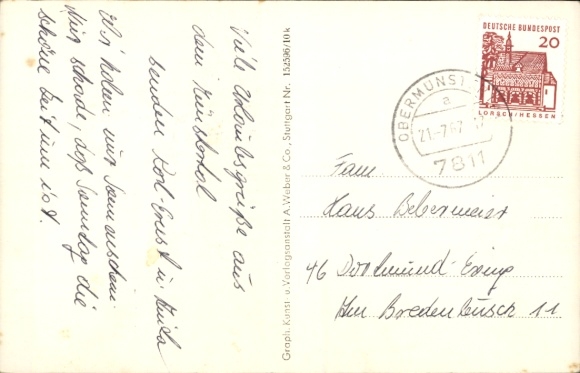 Viele Urlaubsgrüße aus
dem Münstertal
senden Karl-Ernst u.
Wir haben nur Sonnenschein
Nur schade, daß Samstag die
schöne Zeit um ist.
Graph. Kunst- u. Verlagsanstalt A. Weber & Co., Stuttgart Nr. 152596/10k
DEUTSCHE BUNDESPOST
20
LORSCH/HESSEN
OBERMÜNST
a
21.-7.67
7811
Fam.
Hans Bebermeier
46 Dortmund-Eving
Im Bredenbusch 11